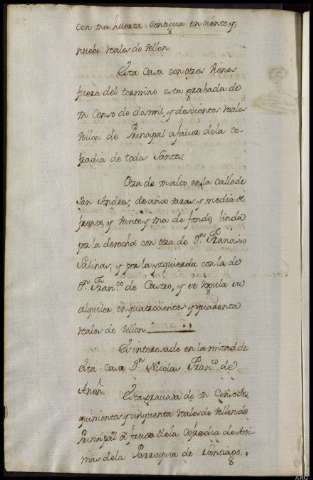 con una huerta contigua en ciento y
nuebe reales de vellon
Esta casa con otros vienes
fuera del termino esta grabada de
un censo de dos mil, y doscientos reales
vellon de Prinzipal a favor de la co-
fradia de todos Santos
Otra de un alto, en la calle de
San Andres, de onze varas, y media de
frente, y treinta y una de fondo, linda
por la derecha con otra de Dn. Francisco
Salinas, y por la izquierda con la de
Dn. Franco. de Castro, y se regula su
alquiler en quatrocientos y quarenta
reales de vellon
El interesado en la mitad de
esta casa Dn. Nicolas Franco. de
Esta gravada de un censo de
quinientos y cinquenta reales de vellon de
Prinzipal a favor de la cofradia de Ani-
mas dela Parroquia de Santiago